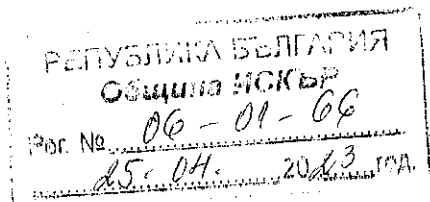 РЕПУБЛИКА БЪЛГАРИЯ
Община ИСКЪР
Рег. № 06 - 01 - 66
25. 04. 2023 год.